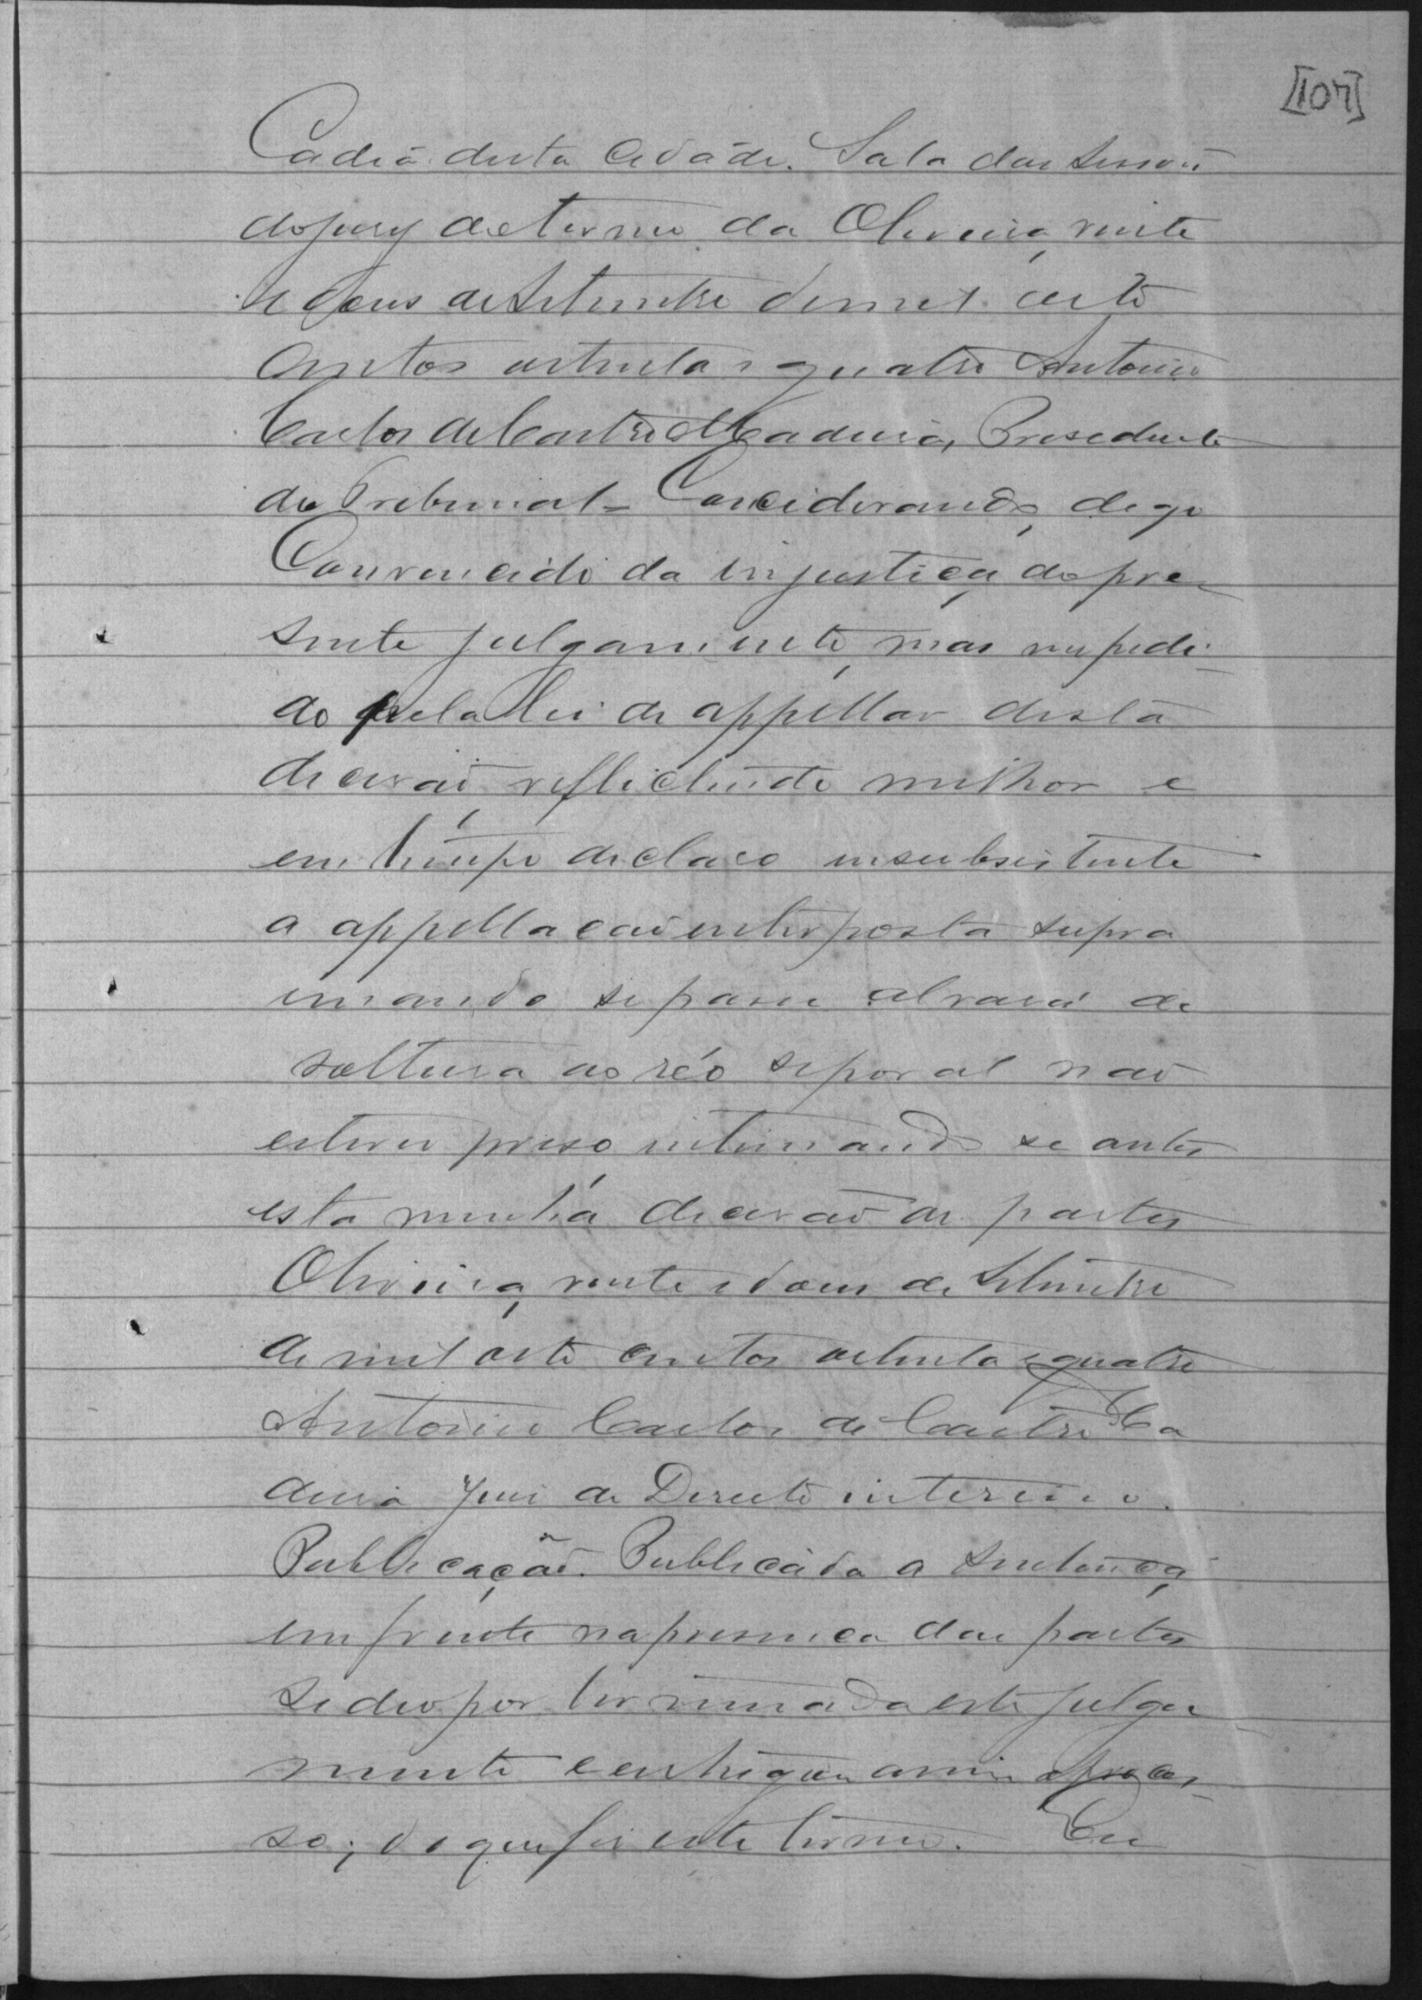 [107]
Cadeia desta cidade. Sala das Sessoẽs
do jury do termo da Oliveira, vinte
e dous de Setembro de mil oito
centos oitenta e quatro Antonio
Carlos de Castro Madeira, Presidente
do Tribunal = Conciderando, digo
Convencido da injustiça do pre-
sente julgamento, mas impedi-
do pela lei de appellar desta
decisaõ, reflictindo melhor e
em tempo declaro insubsistente
a appellacaõ interposta supra
e mando se passe alvará de
soltura ao réo se por al naõ
estiver preso intimando se antes
esta minha decisaõ as partes
Oliveira, vinte e dous de Setembro
de mil oito centos oitenta e quatro
Antonio Carlos de Castro Ma
deira Juis de Direito interino.
Publicação. Publicada a sentença
em frente na presenca das partes
se deo por terminada este julga
mento e entregou a mim o proces-
so; do que fis este termo. Eu